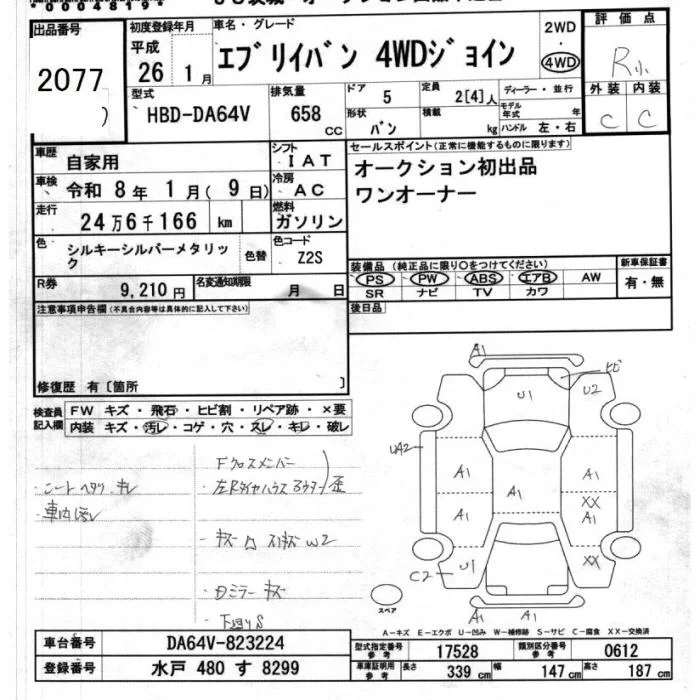 *00048194*
出品番号
2077
初度登録年月
平成
26 1月
車名・グレード
エブリイバン 4WDジョイン
2WD
・
4WD
評価点
R小
外装 内装
C C
型式
HBD-DA64V
排気量
658 CC
ドア 5
定員 2[4]人
ディーラー・並行
モデル年式 年
形状 バン
積載 kg
ハンドル 左・右
車歴 自家用
シフト IAT
車検 令和 8年 1月( 9日)
冷房 AC
走行 24万6千166 km
燃料 ガソリン
色 シルキーシルバーメタリック
色替
色コード Z2S
R券 9,210円
名変通知期限 月 日
セールスポイント(正常に機能するものに限ります)
オークション初出品
ワンオーナー
装備品(純正品に限り○をつけてください)
新車保証書
有・無
PS PW ABS エアB AW
SR ナビ TV カワ
後日品
注意事項申告欄(不具合内容等は具体的に記入して下さい)
修復歴 有〔箇所 〕
検査員記入欄
FW キズ・飛石・ヒビ割・リペア跡・×要
内装 キズ・汚レ・コゲ・穴・スレ・キレ・破レ
シートヘタリ、キレ
車内汚レ
Fクロスメンバー
左Rタイヤハウス
歪
キズ 凹 スリキズ W2
Dミラー キズ
下回りS
A1
U1
U2
UA2
A1
A1
A1
A1
XX
A1
U1
XX
C2
A1
A1
スペア
A-キズ E-エクボ U-凹み W-補修跡 S-サビ C-腐食 XX-交換済
車台番号 DA64V-823224
型式指定番号 参考 17528
類別区分番号 参考 0612
登録番号 水戸 480 す 8299
車庫証明用 参考
長さ 339 cm
幅 147 cm
高さ 187 cm